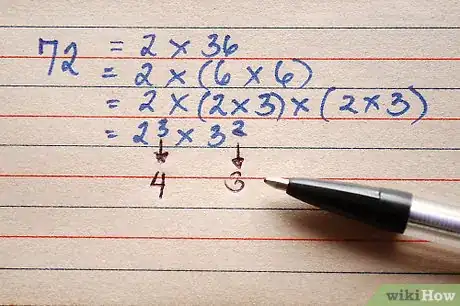 72 = 2 × 36
= 2 × (6 × 6)
= 2 × (2 × 3) × (2 × 3)
= 2³ × 3²
↓ ↓
4 3
wikiHow